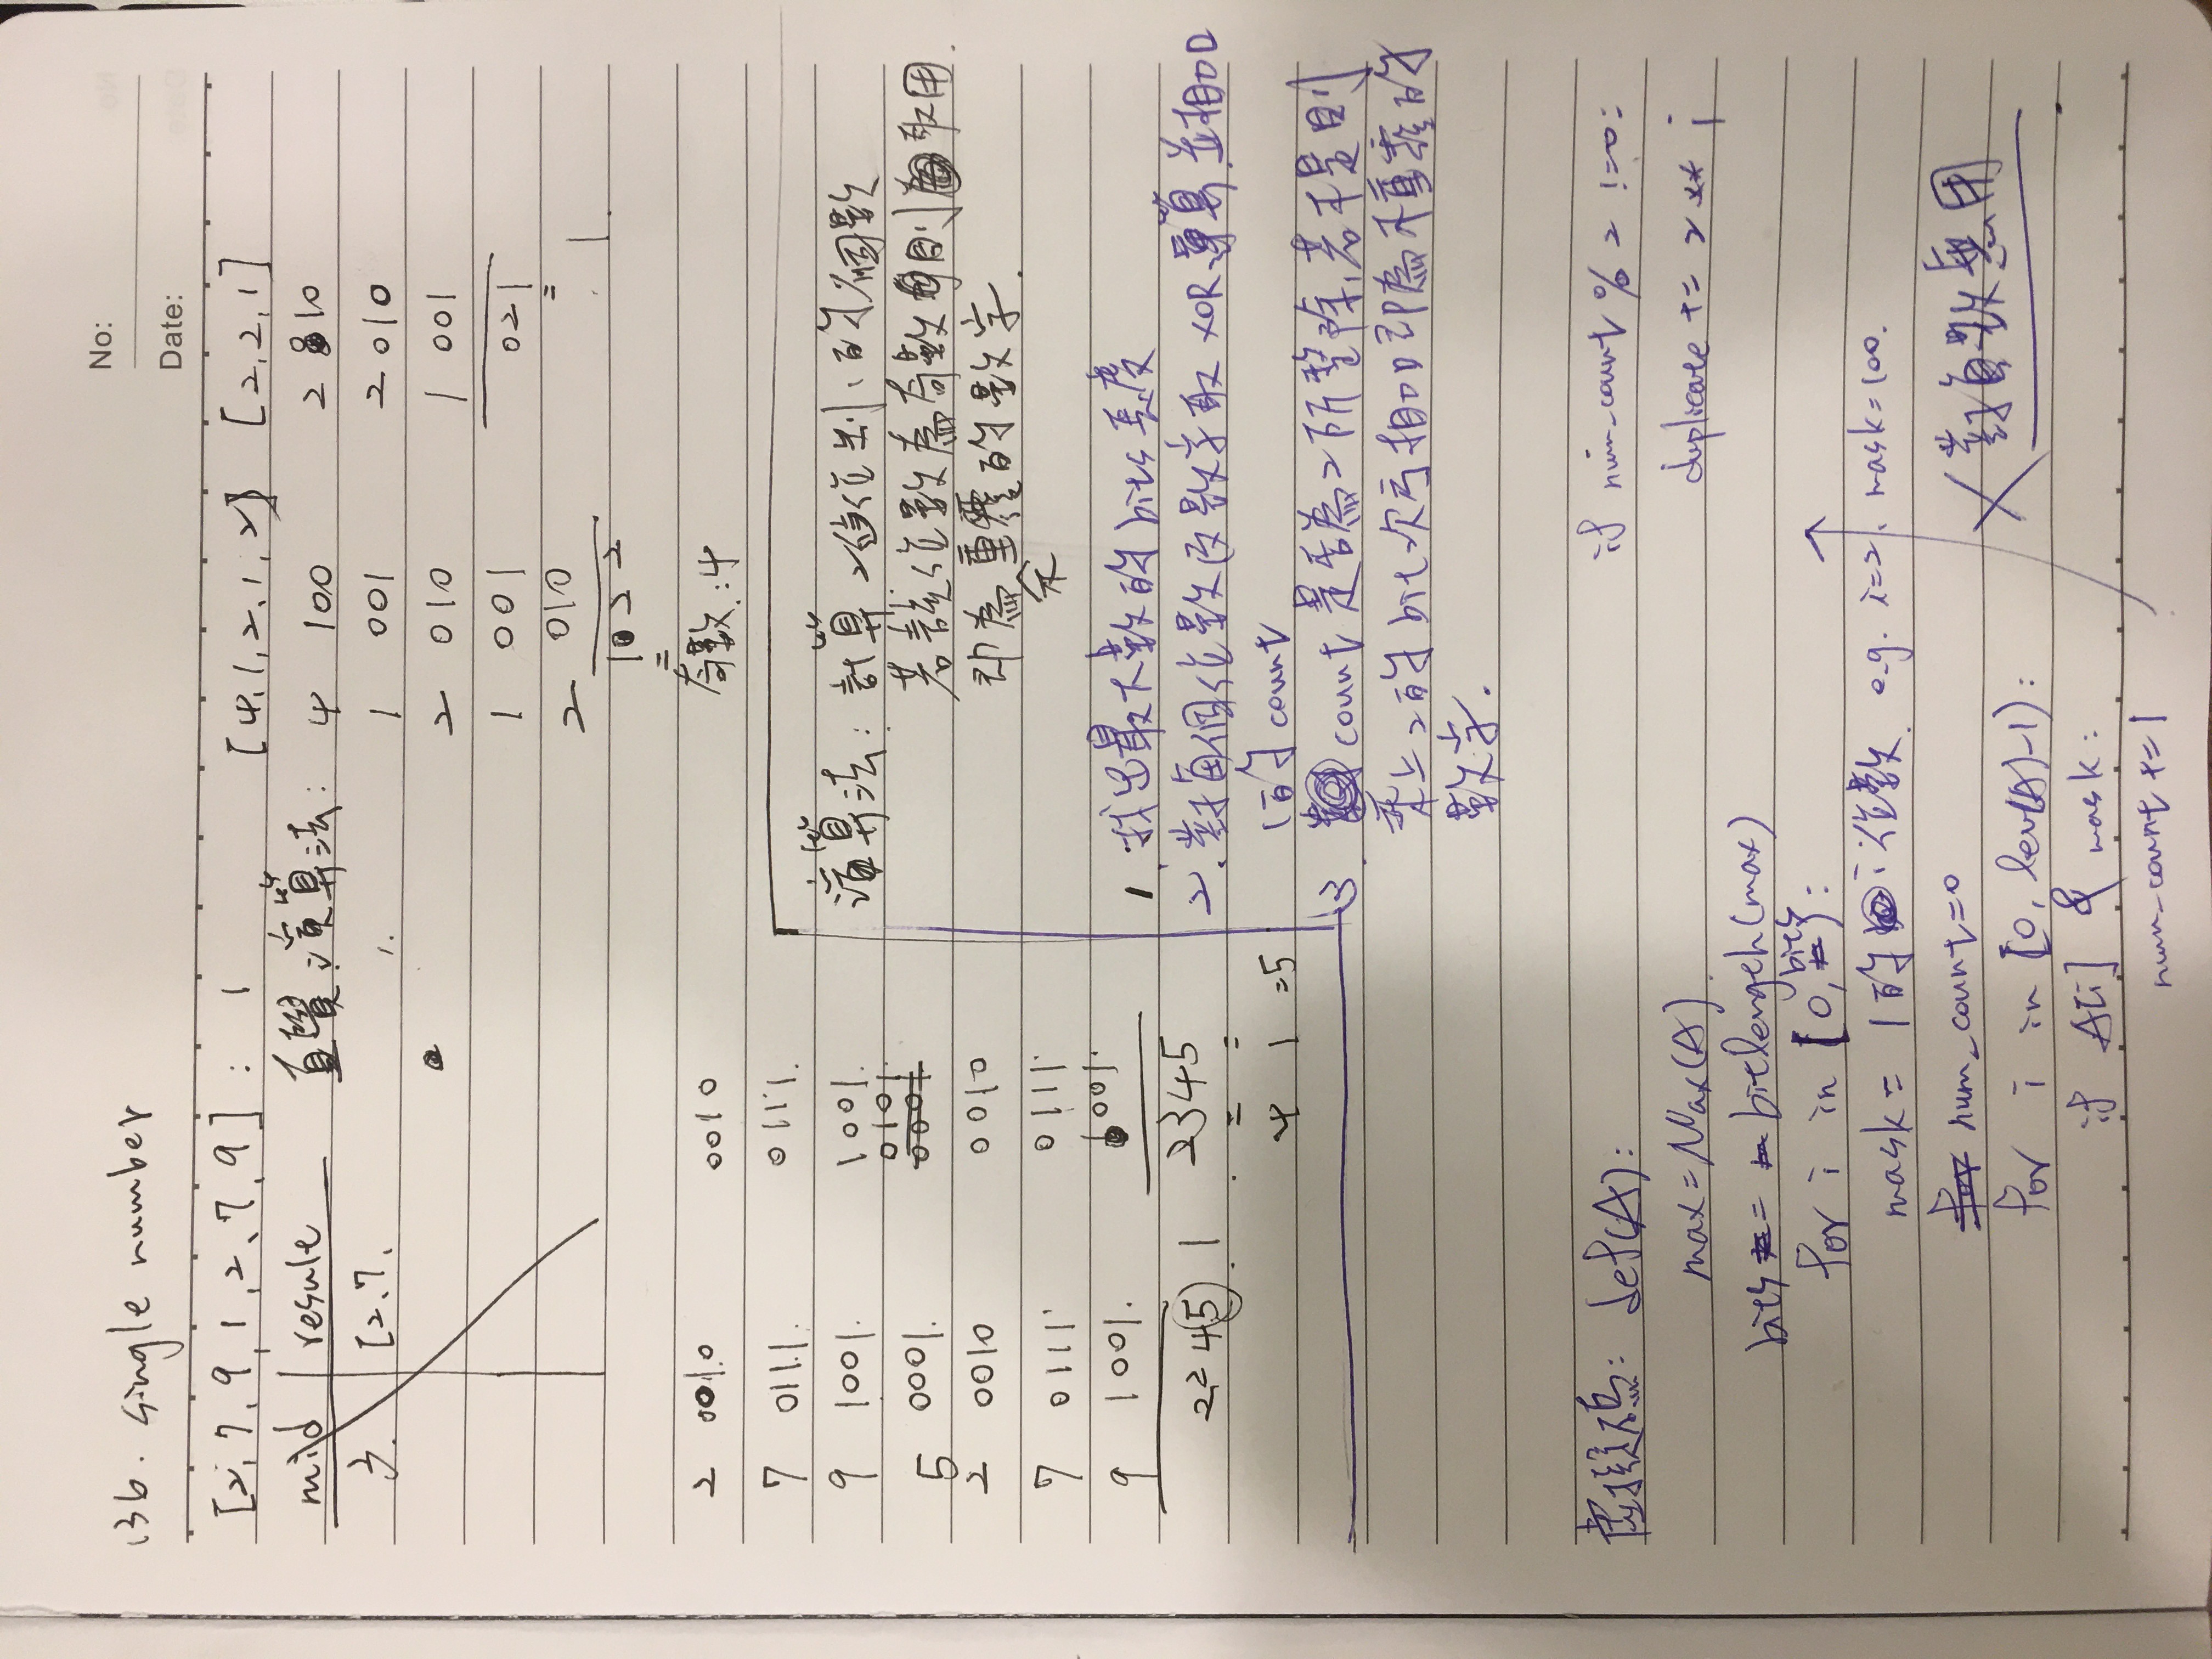 No:
Date:
136. single number
[2, 7, 9, 1, 2, 7, 9] : 1
mid | resule
3. | [2, 7,
直覺演算法:
1.
[4, 1, 2, 1, 2]
4 100
1 001
2 010
1 001
2 010
1 2 2
奇數: 4
[2, 2, 1]
2 010
2 010
1 001
021
1.
2 0010 0010
7 0111. 0111.
9 1001. 1001.
0101.
0001
5 0001.
2 0010 0010
7 0111 0111
9 1001. 1001.
2245 . 1 2345
4 1 =5
演算法: 計算2進位制1的個數
若該位數為奇數則取用.
即為重覆的數字.
不
1. 找出最大數的bits長度
2. 對每個位數及數字取 XOR 運算並相加
1的count
3. count 是否為2所整除, 若不是則
乘上2的bit次方相加即為不重覆的
數字.
虛擬碼: def(A):
max = Max(A).
bits = bitlength(max)
for i in [0, bits):
mask = 1的 i 位數. e.g. i=2, mask=100.
for num_count=0
for i in [0, len(A)-1):
if A[i] & mask:
num_count += 1
if num_count % 2 !=0:
duplicate += 2 ** i
X 對負數無用